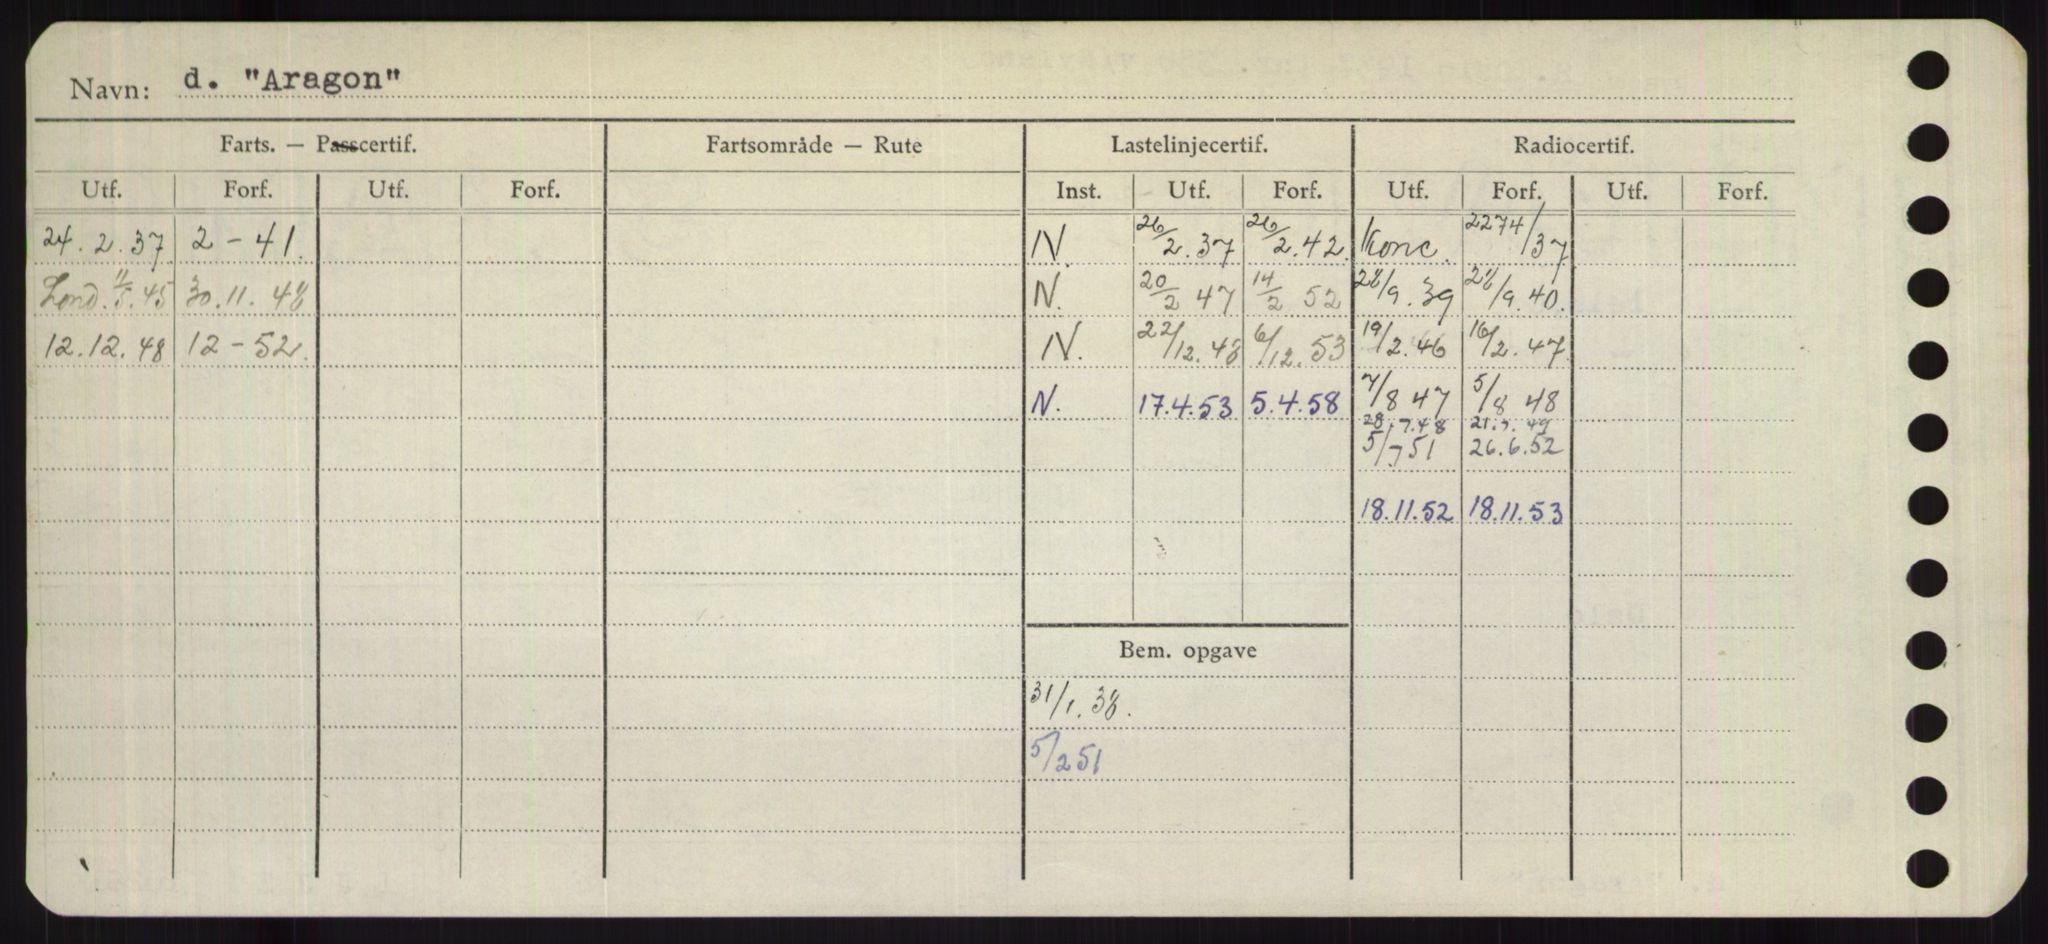 Navn: d. "Aragon"
Farts. — Passcertif. Fartsområde — Rute Lastelinjecertif. Radiocertif.
Utf. Forf. Utf. Forf. Inst. Utf. Forf. Utf. Forf. Utf. Forf.
24.2.37 2-41. N. 26/2.37 26/2.42 Konc. 2274/37
Lond. 11/5.45 30.11.48 N. 20/2 47 14/2 52 28/9.39 28/9.40.
12.12.48 12-52. N. 22/12.48 6/12.53 19/2.46 16/2.47.
N. 17.4.53 5.4.58 7/8 47 5/8 48
28.7.48 21.7.49
5/7 51 26.6.52
18.11.52 18.11.53
Bem. opgave
31/1.38.
5/2 51